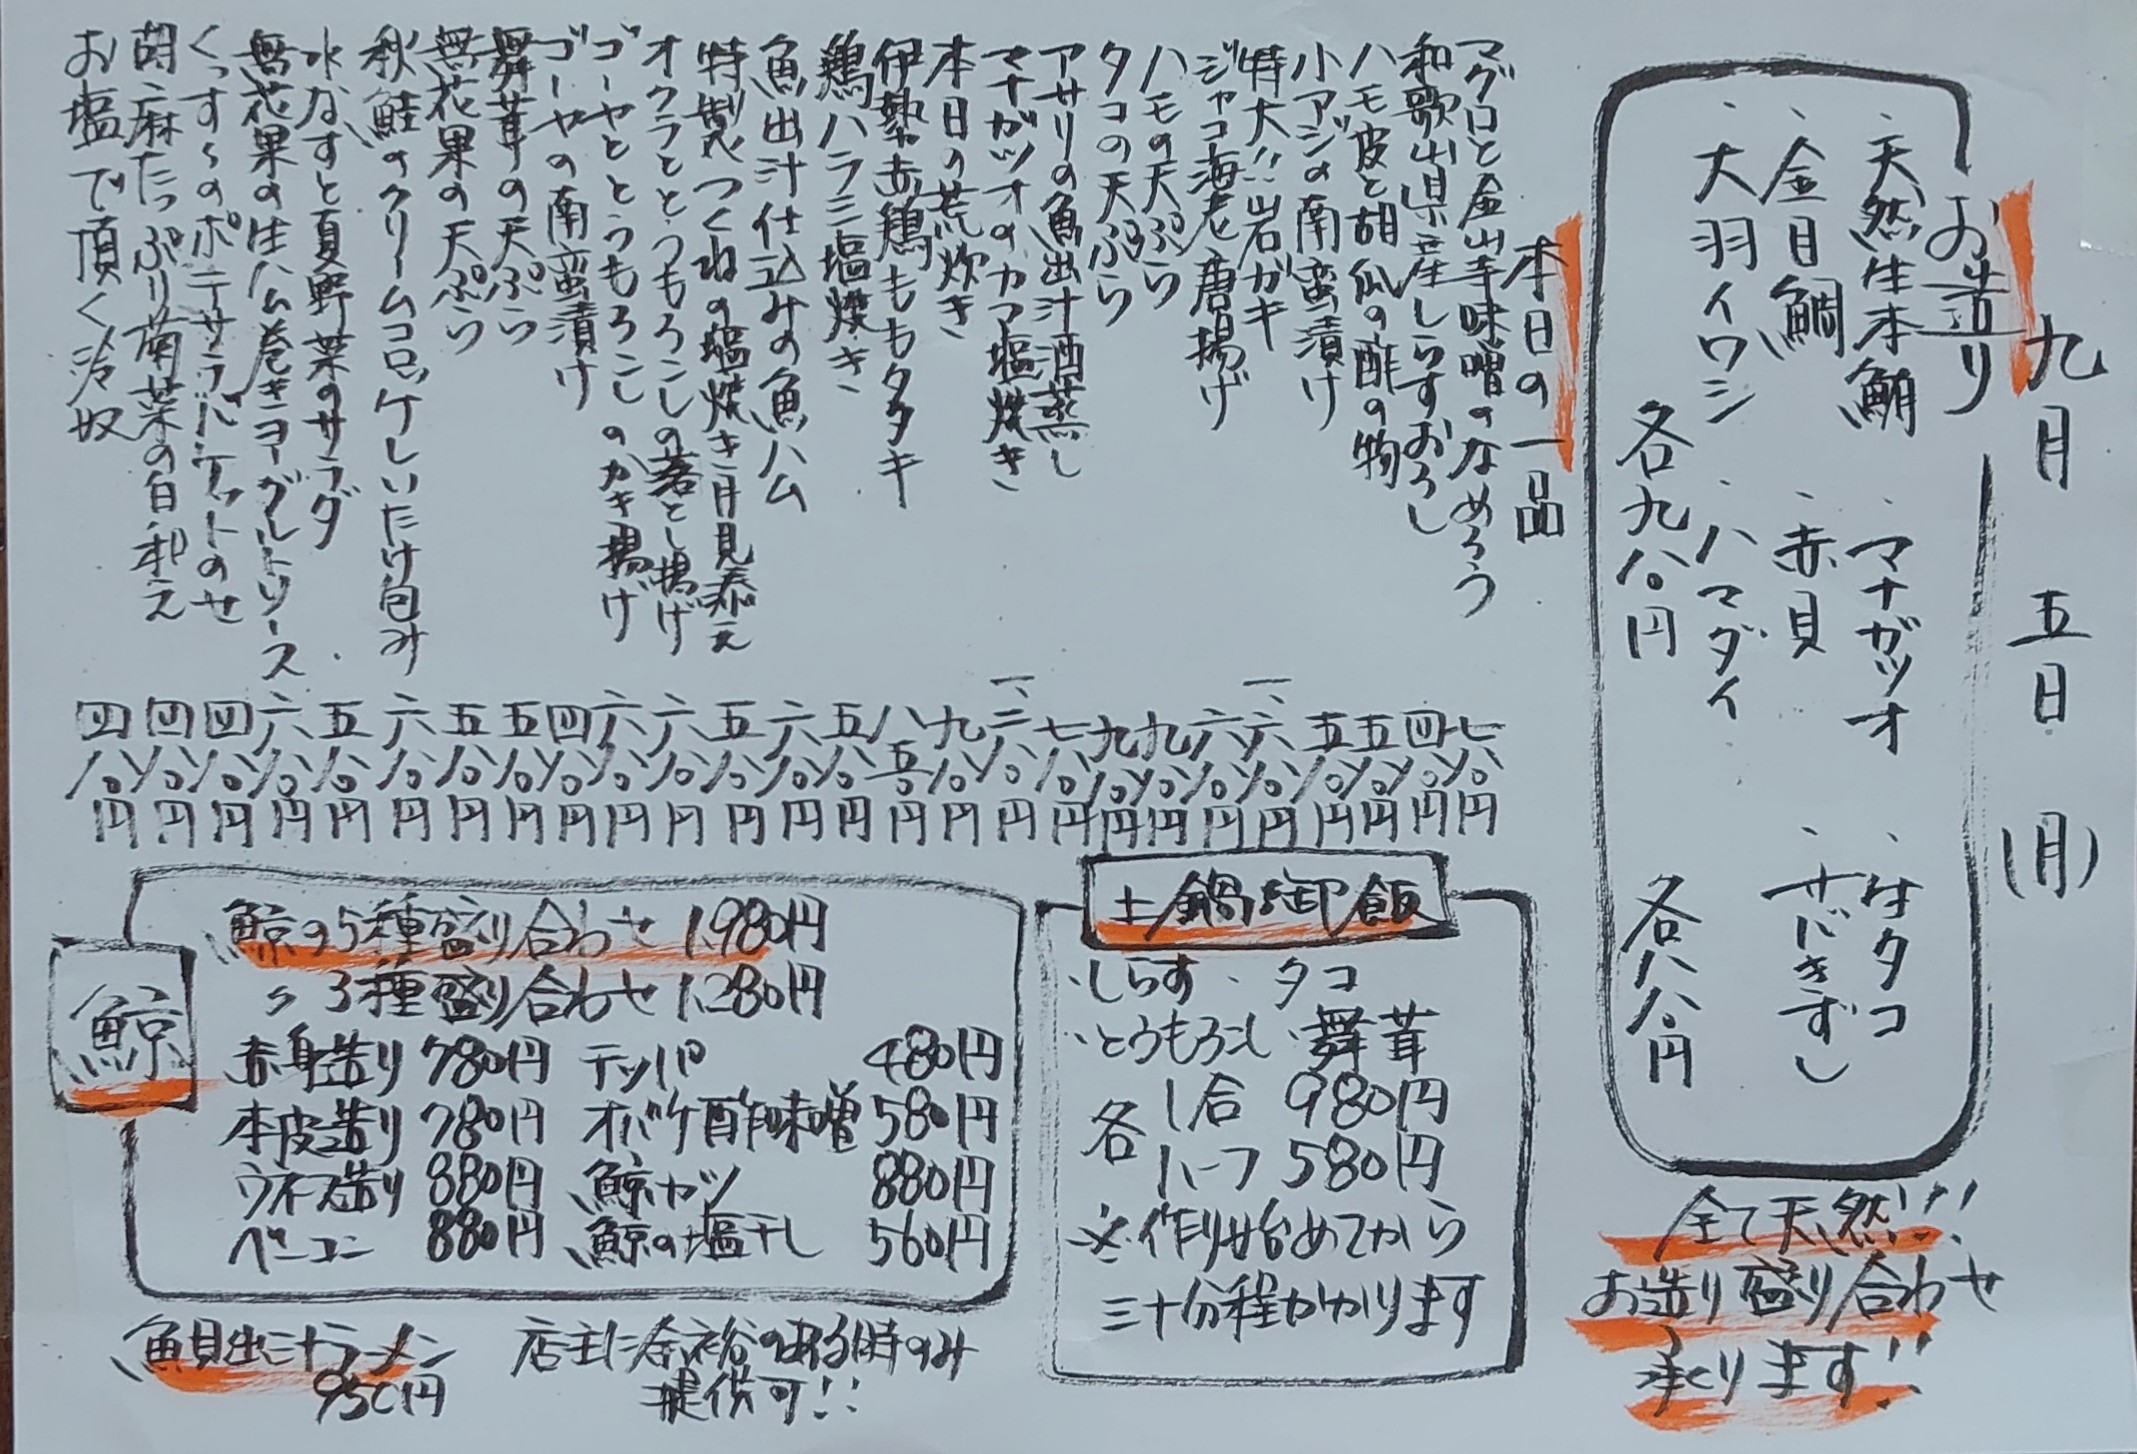 九月 五日 (月)
お造り
・天然生本鮪 ・マナガツオ ・生タコ
・金目鯛 ・赤貝 ・サバきずし
・大羽イワシ ・ハマダイ
各九八〇円 各八八〇円
全て天然!!
お造り盛り合わせ
承ります!!
本日の一品
マグロと金山寺味噌のなめろう 七八〇円
和歌山県産しらすおろし 四八〇円
ハモ皮と胡瓜の酢の物 五八〇円
小アジの南蛮漬け 五八〇円
特大!!岩ガキ 一、六八〇円
ジャコ海老唐揚げ 六八〇円
ハモの天ぷら 九八〇円
タコの天ぷら 九八〇円
アサリの魚出汁酒蒸し 七八〇円
マナガツオのカマ塩焼き 一、二八〇円
本日の荒炊き 九八〇円
伊勢赤鶏ももタタキ 八五〇円
鶏ハラミ塩焼き 五八〇円
魚出汁仕込みの魚ハム 六八〇円
特製つくねの塩焼き 月見添え 五八〇円
オクラととうもろこしの落とし揚げ 六八〇円
ゴーヤととうもろこしのかき揚げ 六八〇円
ゴーヤの南蛮漬け 四八〇円
舞茸の天ぷら 五八〇円
無花果の天ぷら 五八〇円
秋鮭のクリームコロッケしいたけ包み 六八〇円
水なすと夏野菜のサラダ 五八〇円
無花果の生ハム巻きヨーグルトソース 六八〇円
くっすぅのポテサラバケットのせ 四八〇円
胡麻たっぷり菊菜の白和え 四八〇円
お塩で頂く冷奴 四八〇円
土鍋御飯
・しらす ・タコ
・とうもろこし ・舞茸
各 1合 980円
ハーフ 580円
※作り始めてから
三十分程かかります
鯨
鯨の5種盛り合わせ 1,980円
〃 3種盛り合わせ 1,280円
赤身造り 780円 テッパ 480円
本皮造り 780円 オバケ酢味噌 580円
ウネス造り 880円 鯨カツ 880円
ベーコン 880円 鯨の塩干し 560円
魚貝出汁ラーメン
950円
店主に余裕の有る時のみ
提供可!!